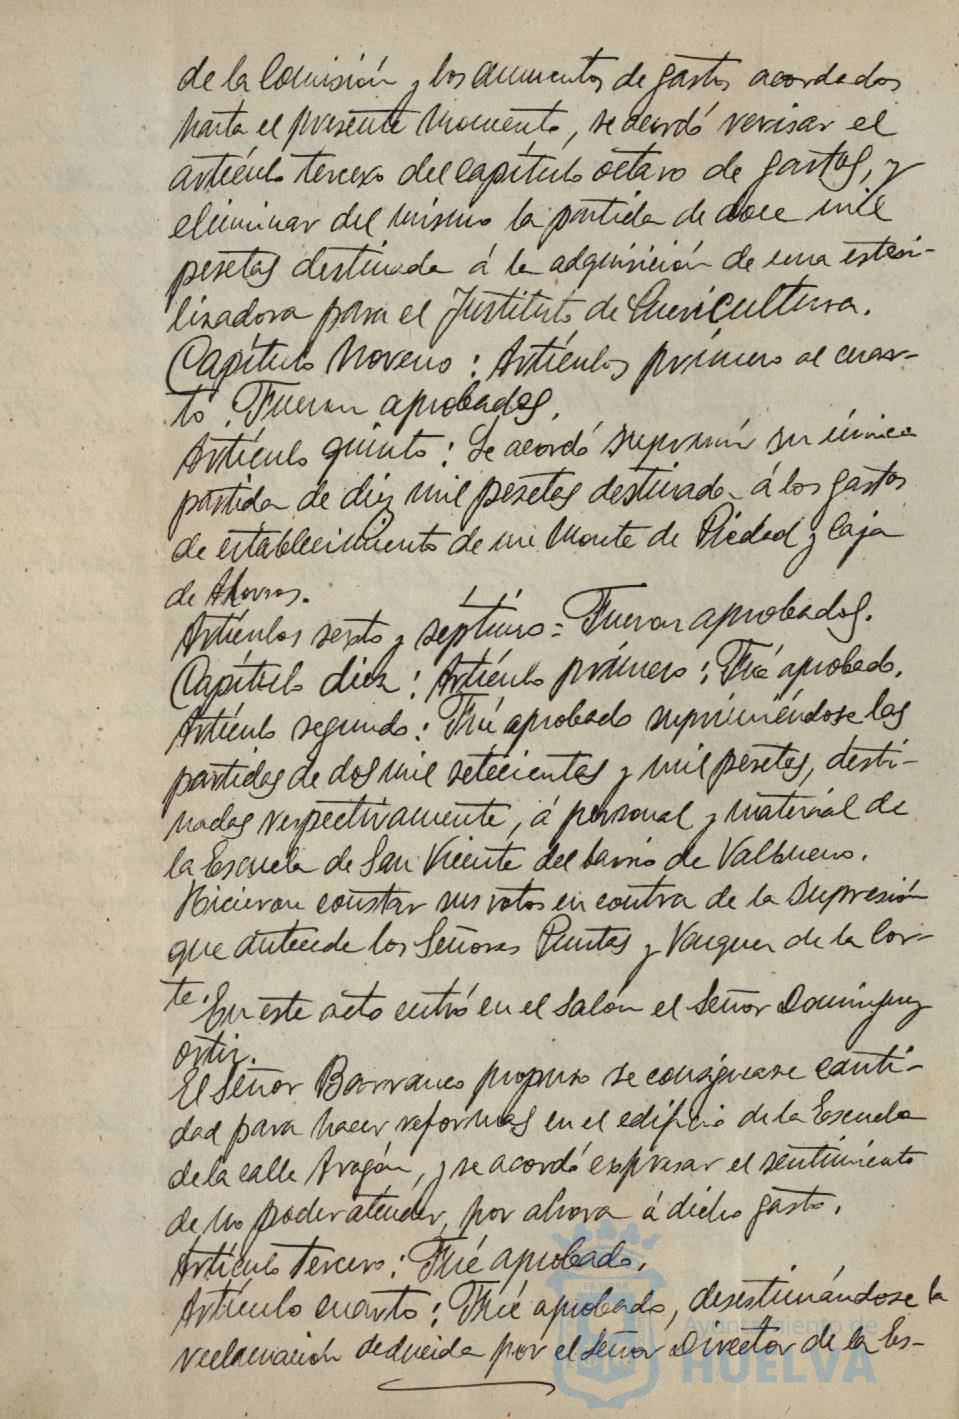 de la Comisión y los aumentos de gastos acordados
hasta el presente momento, se acordó revisar el
artículo tercero del capítulo octavo de gastos, y
eliminar del mismo la partida de doce mil
pesetas destinada á la adquisición de una esteri-
lizadora para el Instituto de Puericultura.
Capítulo Noveno: Artículos primero al cuar-
to. Fueron aprobados.
Artículo quinto: Se acordó suprimir su única
partida de diez mil pesetas destinada á los gastos
de establecimiento de un Monte de Piedad y Caja
de Ahorros.
Artículos sexto y septimo = Fueron aprobados.
Capítulo diez: Artículo primero: Fué aprobado.
Artículo segundo: Fué aprobado suprimiéndose las
partidas de dos mil setecientas y mil pesetas, desti-
nadas respectivamente, á personal y material de
la Escuela de San Vicente del barrio de Valbueno.
Hicieron constar sus votos en contra de la supresión
que antecede los Señores Puntas y Vazquez de la Cor-
te. En este acto entró en el salón el Señor Dominguez
Ortiz.
El Señor Barranco propuso se consignase canti-
dad para hacer reformas en el edificio de la Escuela
de la calle Aragón, y se acordó expresar el sentimiento
de no poder atender, por ahora á dicho gasto.
Artículo tercero: Fué aprobado.
Artículo cuarto: Fué aprobado, desestimándose la
reclamación deducida por el Señor Director de la Es-
Ayuntamiento de
HUELVA